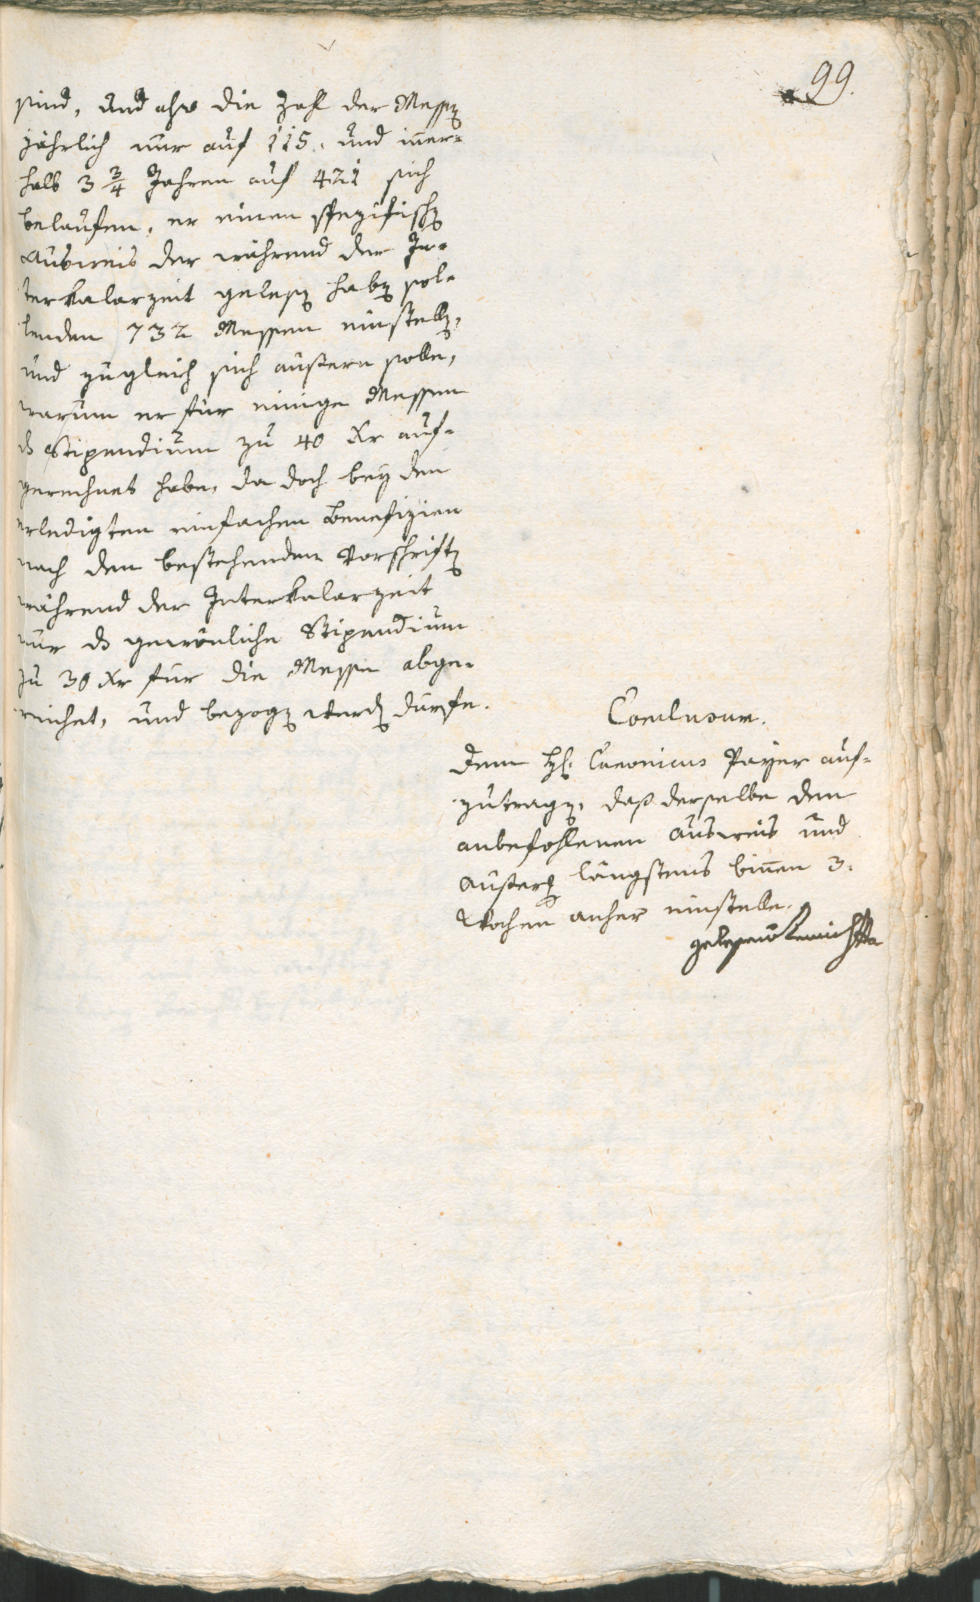 99.
sind, und also die Zahl der Messen
jährlich nur auf 115. und inner-
halb 3 3/4 Jahren auf 421 sich
belaufen, er einen spezifischen
Ausweis der während der In-
terkalarzeit gelesen haben sol-
lenden 732 Messen einstellen,
und zugleich sich äußern solle,
warum er für einige Messen
ds Stipendium zu 40 Xr auf-
gerechnet habe, da doch bey den
erledigten einfachen Benefizien
nach den bestehenden Vorschriften
während der Interkalarzeit
nur ds gewönliche Stipendium
zu 30 Xr für die Messe abge-
reichet, und bezogen werden dürfe.
Conclusum.
Dem H. Canonicus Payer auf-
zutragen, daß derselbe den
anbefohlenen Ausweis und
Äußerung längstens binnen 3.
Wochen anher einstelle.
gelesen